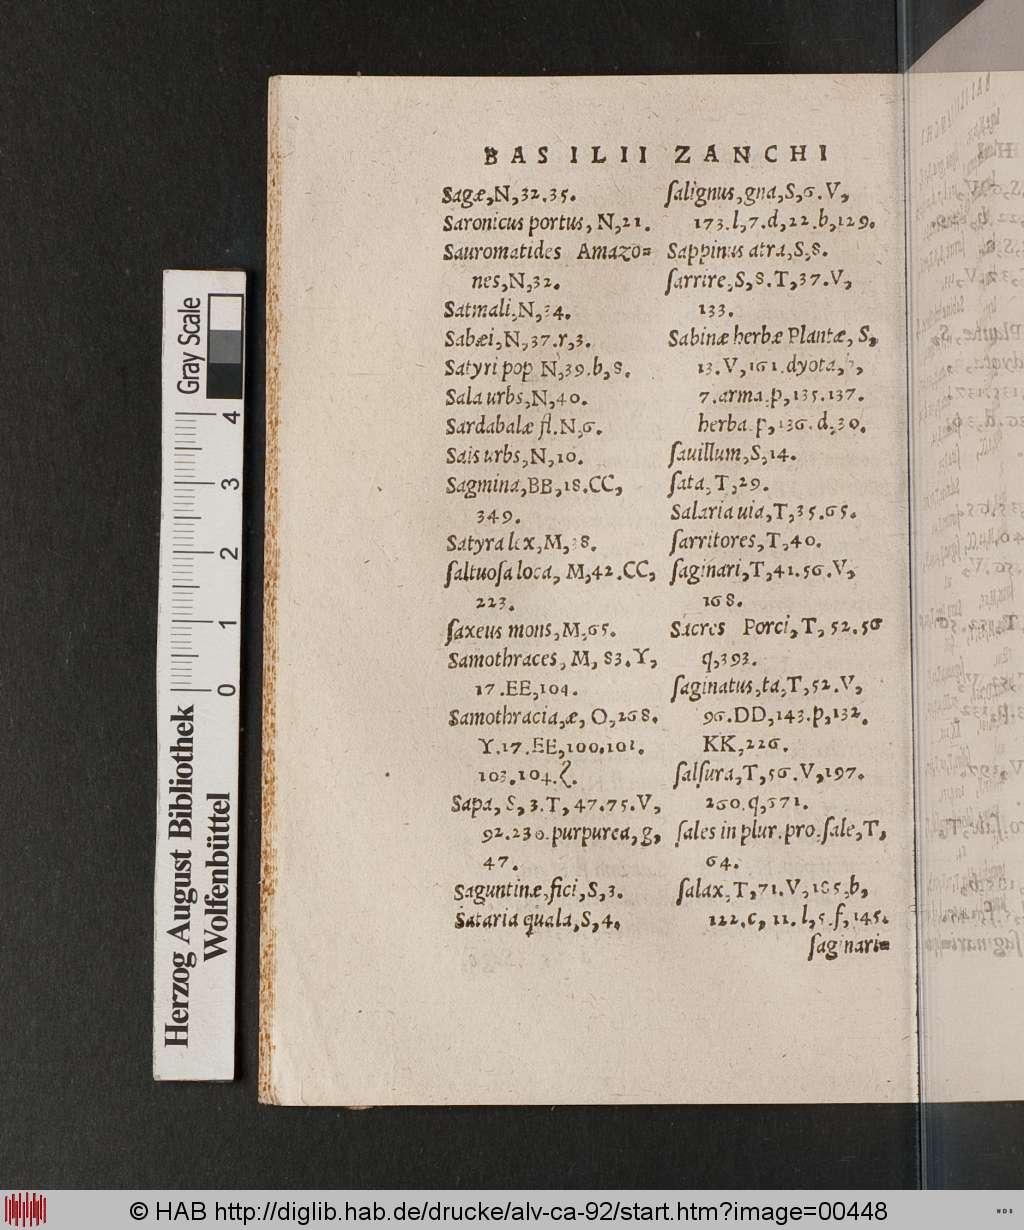 BASILII ZANCHI
Sagæ,N,32.35.
Saronicus portus, N,21.
Sauromatides Amazo=
nes,N,32.
Satmali,N,34.
Sabæi,N,37.r,3.
Satyri pop N,39.b,8.
Sala urbs,N,40.
Sardabalæ fl.N,6.
Sais urbs,N,10.
Sagmina,BB,18.CC,
349.
Satyra lex,M,38.
ſaltuoſa loca, M,42.CC,
223.
ſaxeus mons,M,65.
Samothraces, M, 83.Y,
17.EE,104.
Samothracia,æ, O,268.
Y.17.EE,100.101.
103.104.
Sapa, S, 3.T, 47.75.V,
92.230.purpurea,g,
47.
Saguntinæ,fici,S,3.
Sataria quala,S,4.
ſalignus,gna,S,6.V,
173.l,7.d,22.b,129.
Sappinus atra,S,8.
ſarrire,S,8.T,37.V,
133.
Sabinæ herbæ Plantæ, S,
13.V,161.dyota,
7.arma.p,135.137.
herba.p,136.d,30.
ſauillum,S,14.
ſata,T,29.
Salaria uia,T,35.65.
ſarritores,T,40.
ſaginari,T,41.56.V,
168.
Sacres Porci,T,52.56
q,393.
ſaginatus,ta,T,52.V,
96.DD,143.p,132.
KK,226.
ſalſura,T,56.V,197.
260.q,571.
ſales in plur.pro.ſale,T,
64.
ſalax,T,71.V,185.b,
122.c, 11.l,5.f,145.
ſaginari=
Gray Scale
4
3
2
1
0
Herzog August Bibliothek
Wolfenbüttel
© HAB http://diglib.hab.de/drucke/alv-ca-92/start.htm?image=00448